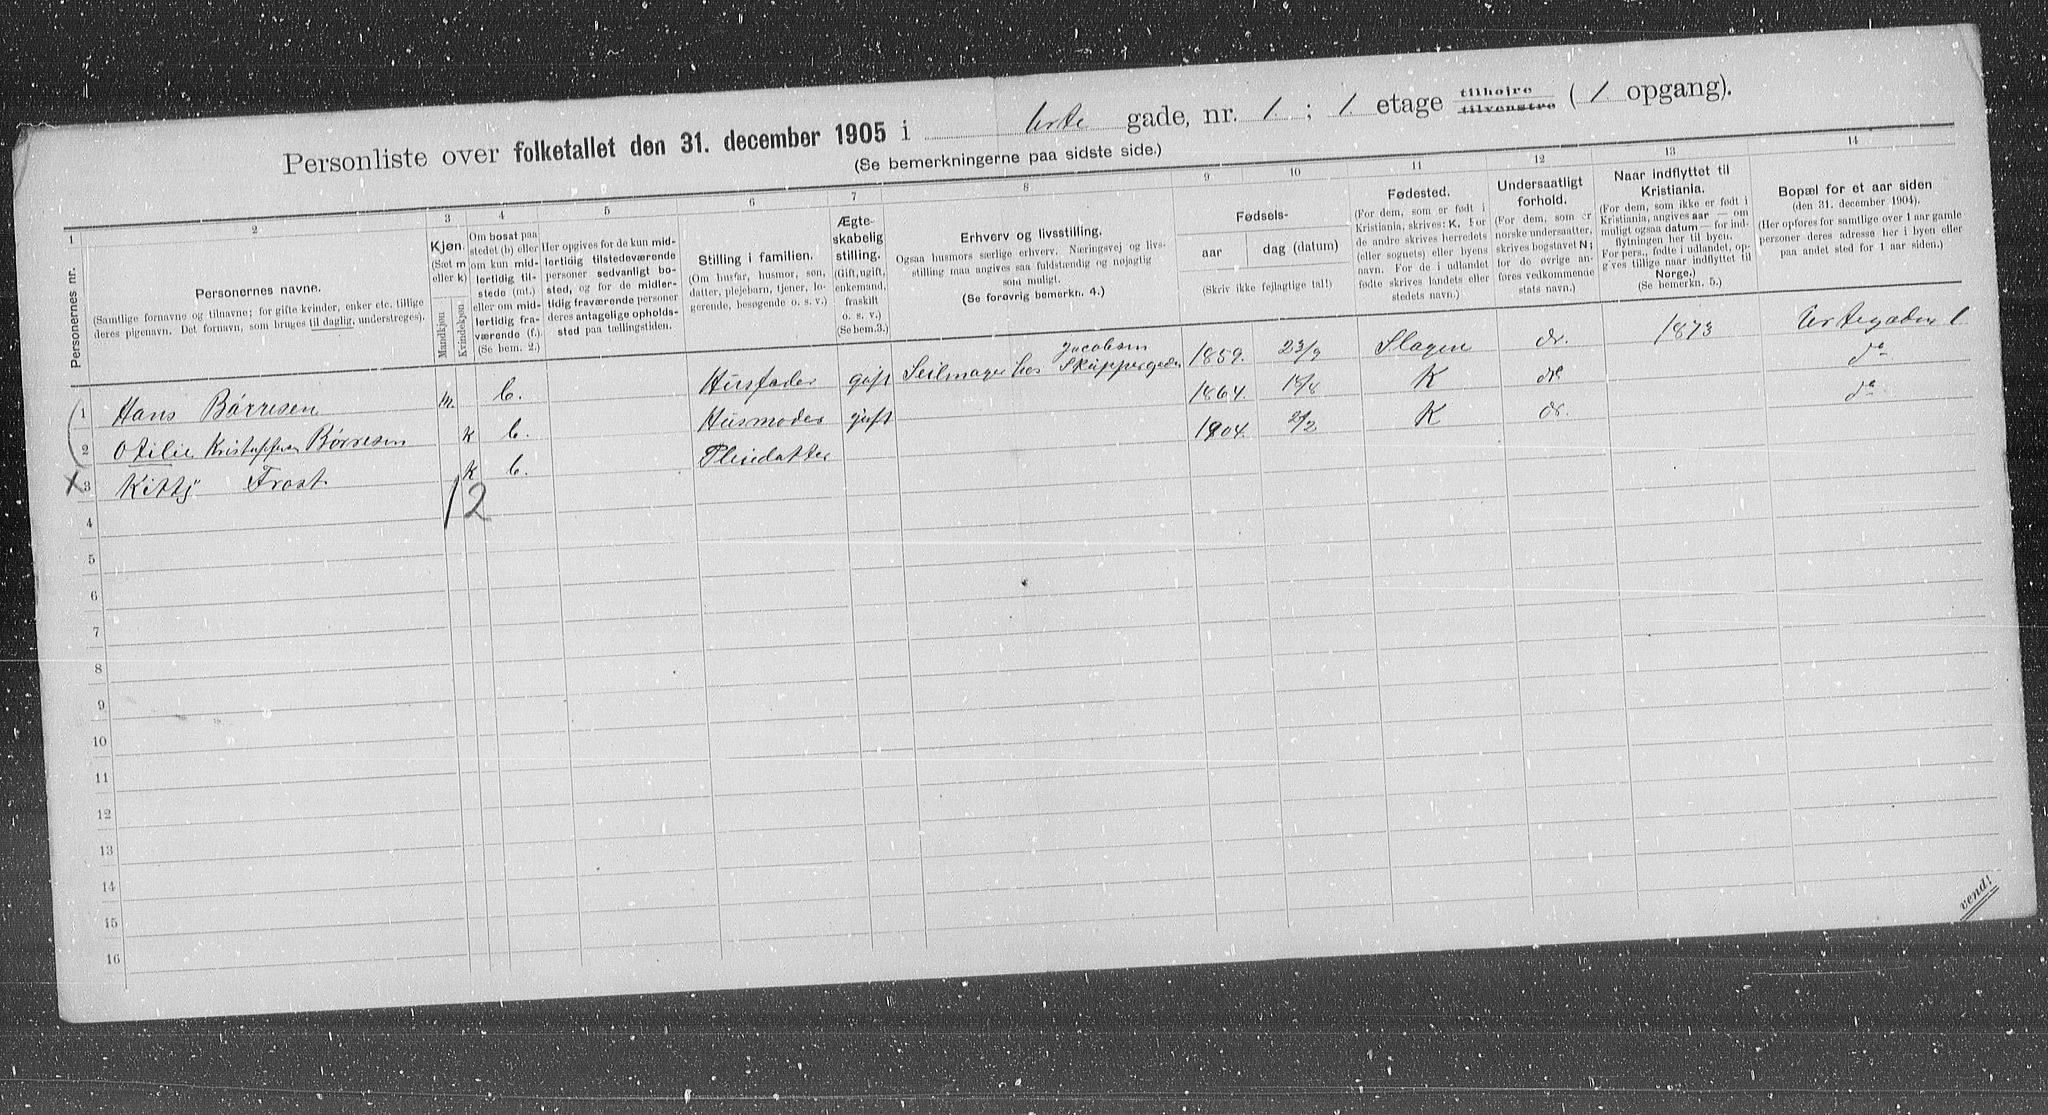 Personliste over folketallet den 31. december 1905 i Urte gade, nr. 1. ; 1. etage tilhøjre tilvenstre ( 1 opgang).
(Se bemerkningerne paa sidste side.)
1 2 3 4 5 6 7 8 9 10 11 12 13 14
Personernes nr.
Personernes navne.
(Samtlige fornavne og tilnavne; for gifte kvinder, enker etc. tillige
deres pigenavn. Det fornavn, som bruges til daglig, understreges).
Kjøn.
(Sæt m
eller k)
Mandkjøn
Kvindekjøn
Om bosat paa
stedet (b) eller
om kun mid-
lertidig til-
stede (mt.)
eller om mid-
lertidig fra-
værende (f.)
(Se bem. 2.)
Her opgives for de kun mid-
lertidig tilstedeværende
personer sedvanligt bo-
sted, og for de midler-
tidig fraværende personer
deres antagelige opholds-
sted paa tællingstiden.
Stilling i familien.
(Om husfar, husmor, søn,
datter, plejebarn, tjener, lo-
gerende, besøgende o. s. v.)
Ægte-
skabelig
stilling.
(Gift, ugift,
enkemand,
fraskilt
o. s. v.)
(Se bem.3.)
Erhverv og livsstilling.
Ogsaa husmors særlige erhverv. Næringsvej og livs-
stilling maa angives saa fuldstændig og nøjagtig
som muligt.
(Se forøvrig bemerkn. 4.)
Fødsels-
aar
dag (datum)
(Skriv ikke fejlagtige tal!)
Fødested.
(For dem, som er født i
Kristiania, skrives: K. For
de andre skrives herredets
(eller sognets) eller byens
navn. For de i udlandet
fødte skrives landets eller
stedets navn.)
Undersaatligt
forhold.
(For dem, som er
norske undersaatter,
skrives bogstavet N;
for de øvrige an-
føres vedkommende
stats navn.)
Naar indflyttet til
Kristiania.
(For dem, som ikke er født i
Kristiania, angives aar — om
muligt ogsaa datum — for ind-
flytningen her til byen.
For pers., fødte i udlandet, op-
gives tillige naar indflyttet til
Norge.)
(Se bemerkn. 5.)
Bopæl for et aar siden
(den 31. december 1904).
(Her opføres for samtlige over 1 aar gamle
personer deres adresse her i byen eller
paa andet sted for 1 aar siden.)
1 Hans Børresen m. b. Husfader gift Seilmager hos Jacobsen Skippergaden 1859. 23/9 Slagen n. 1873 Urtegaden 1
2 Otilie Kristoffersen Børresen k b. Husmoder gift 1864. 18/8 K n. do
X 3 Kitty Frost k b. Pleiedatter 1904. 2/2 K n. do
12
4
5
6
7
8
9
10
11
12
13
14
15
16
vend!